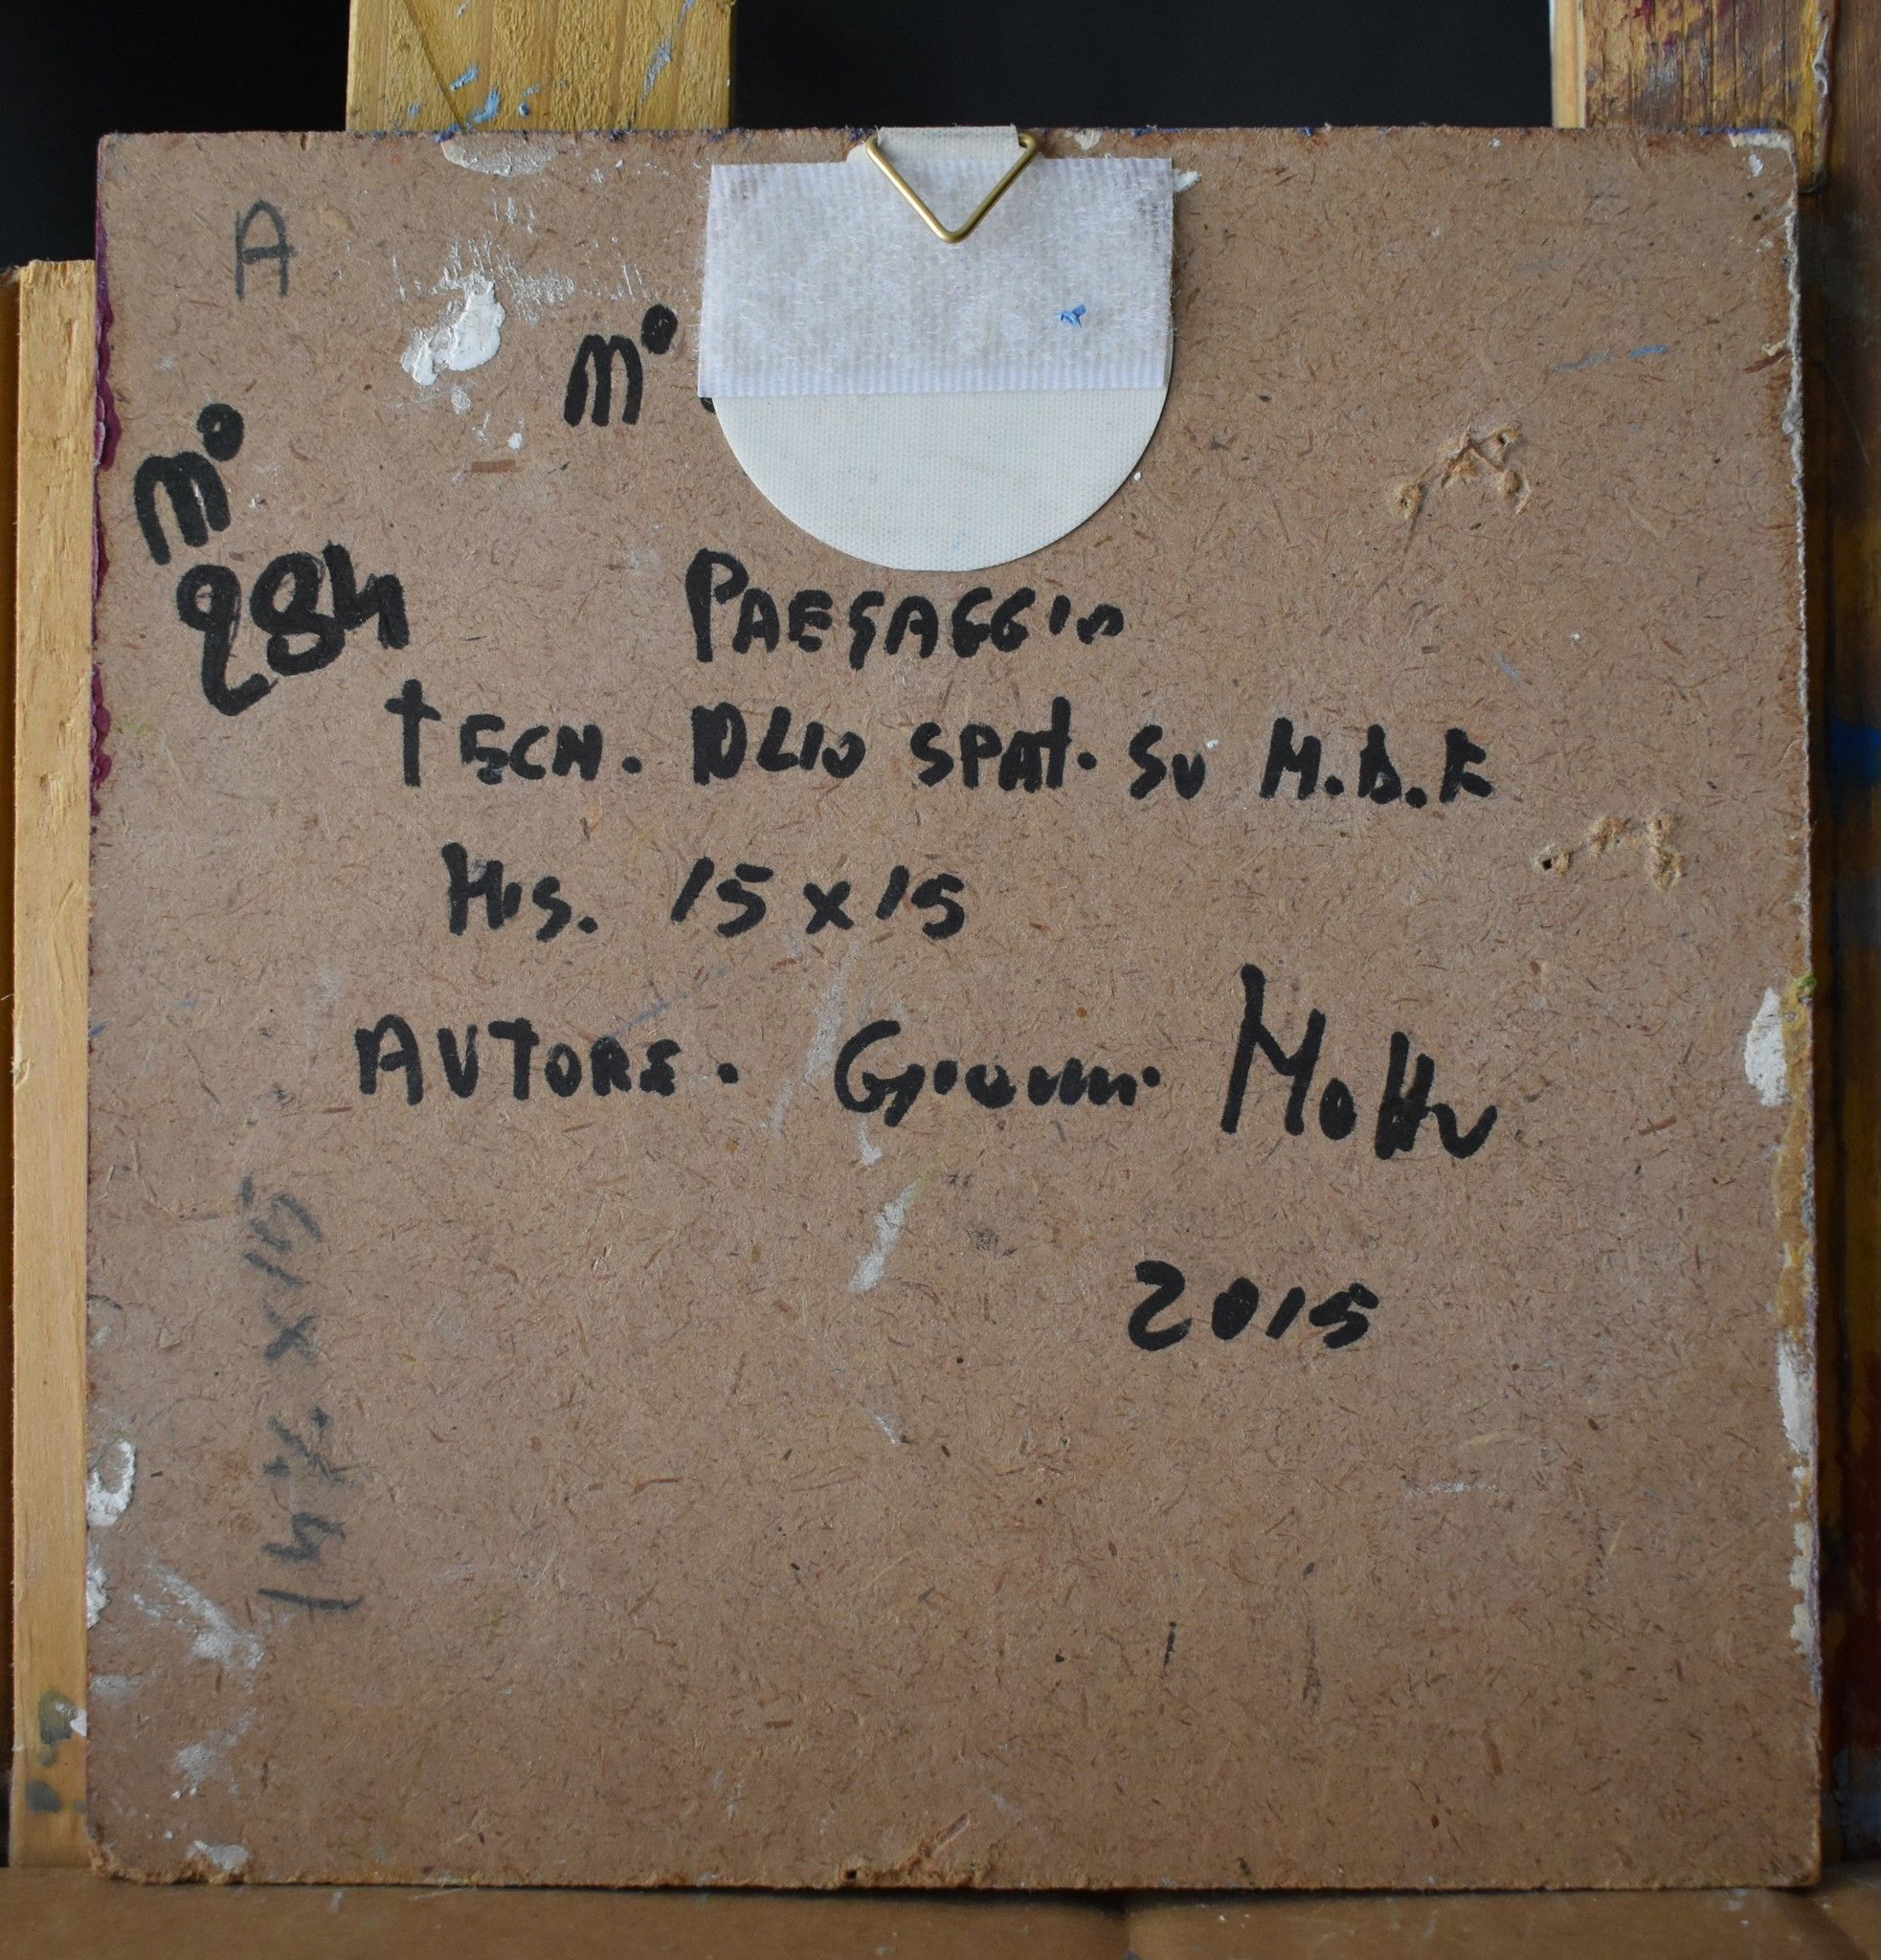 A
m°
m°
284
PAESAGGIO
tECN. OLIO SPAt. SU M.D.F
MIS. 15 x 15
AUTORE. Giovanni Mottu
2015
x15